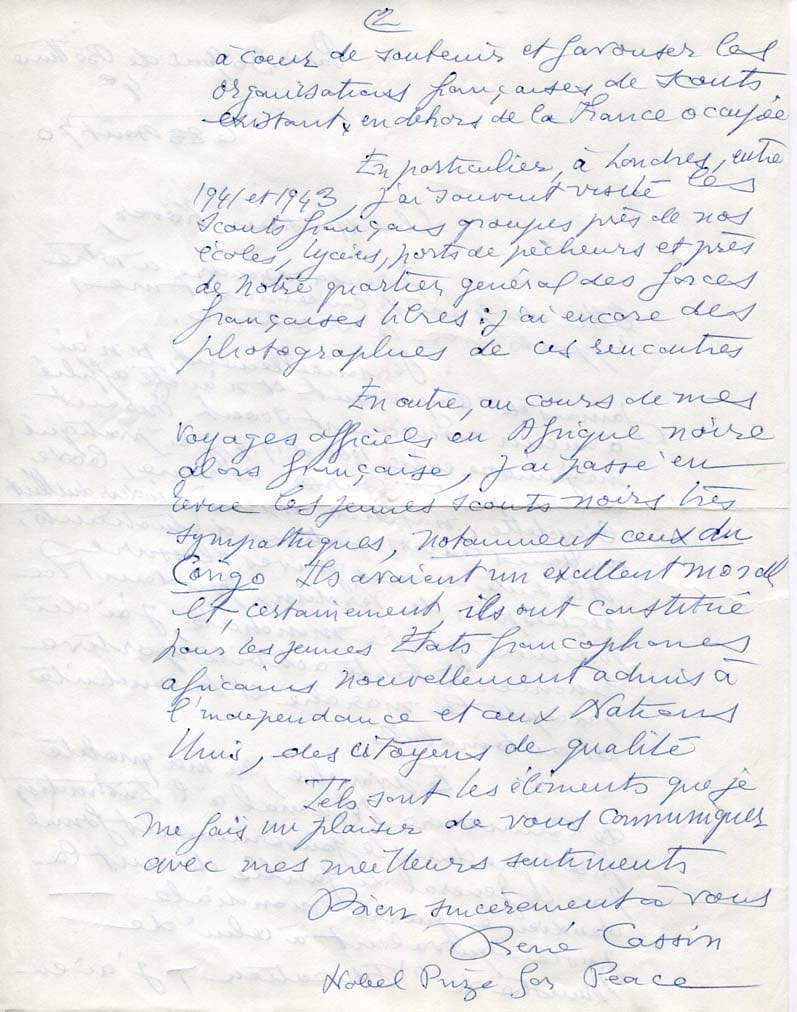 2
à coeur de soutenir et favoriser les
organisations françaises de scouts
existant, en dehors de la France occupée
En particulier, à Londres, entre
1941 et 1943, j'ai souvent visité les
scouts français groupés près de nos
écoles, lycées, ports de pêcheurs et près
de notre quartier général des forces
françaises libres : j'ai encore des
photographies de ces rencontres
En outre, au cours de mes
voyages officiels en Afrique noire
alors française, j'ai passé en
revue les jeunes scouts noirs très
sympathiques, notamment ceux du
Congo Ils avaient un excellent moral
et, certainement, ils ont constitué
pour les jeunes Etats francophones
africains nouvellement admis à
l'indépendance et aux Nations
Unis, des citoyens de qualité
Tels sont les éléments que je
me fais un plaisir de vous communiquer
avec mes meilleurs sentiments
Bien sincèrement à vous
René Cassin
Nobel Prize for Peace